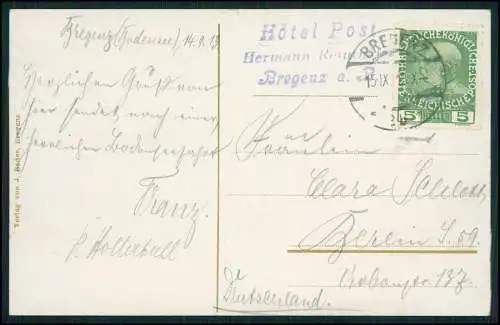 Bregenz (Bodensee), 14.9.13
Herzlichen Gruß von
hier sendet nach einer
herrlichen Bodenseefahrt
Franz.
Verlag von J. Bader, Bregenz
Hôtel Post
Hermann
Bregenz a.
BREGENZ
15.IX.
KAISERLICHE KÖNIGLICHE
ÖSTERREICHISCHE POST
5 5
Fräulein
Clara
Berlin S. 59.
137.
Deutschland.